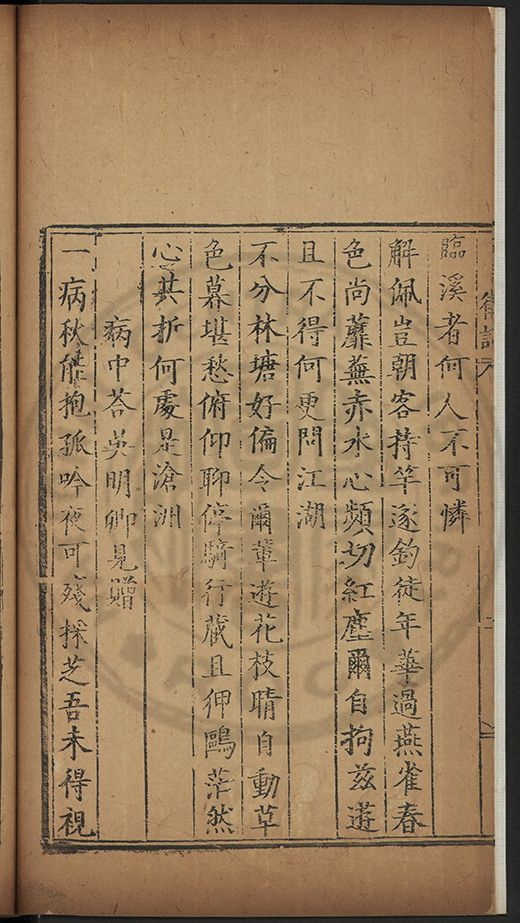 臨溪者何人不可憐
解佩豈朝客持竿逐釣徒年華過燕雀春
色尚蘼蕪赤水心頻切紅塵爾自拘玆遊
且不得何更問江湖
不分林塘好偏令爾輩遊花枝晴自動草
色暮堪愁俯仰聊停騎行藏且狎鷗茫然
心共折何處是滄洲
病中荅吳明卿見贈
一病秋能抱孤吟夜可殘採芝吾未得視